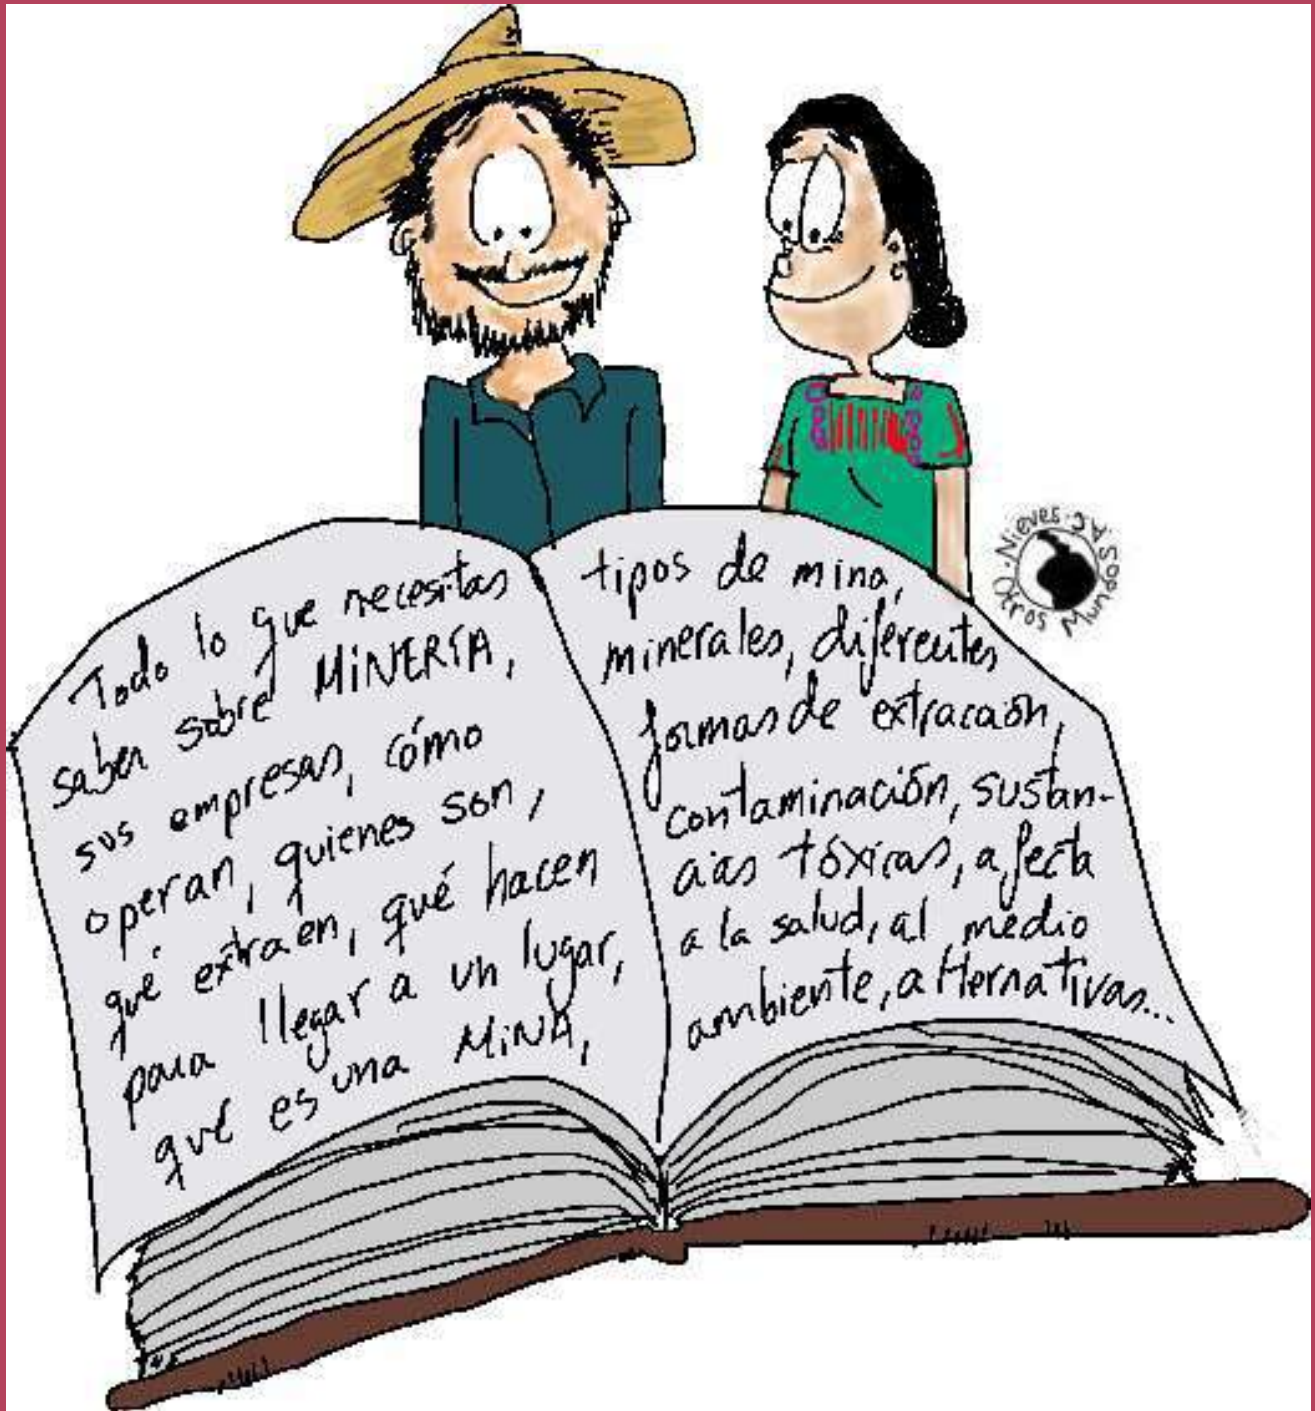 Todo lo que necesitas
saber sobre MINERÍA,
sus empresas, cómo
operan, quienes son,
qué extraen, qué hacen
para llegar a un lugar,
qué es una MINA,
tipos de mina,
minerales, diferentes
formas de extracción,
contaminación, sustan-
cias tóxicas, afecta
a la salud, al medio
ambiente, alternativas...
Nieves. Otros Mundos AC.